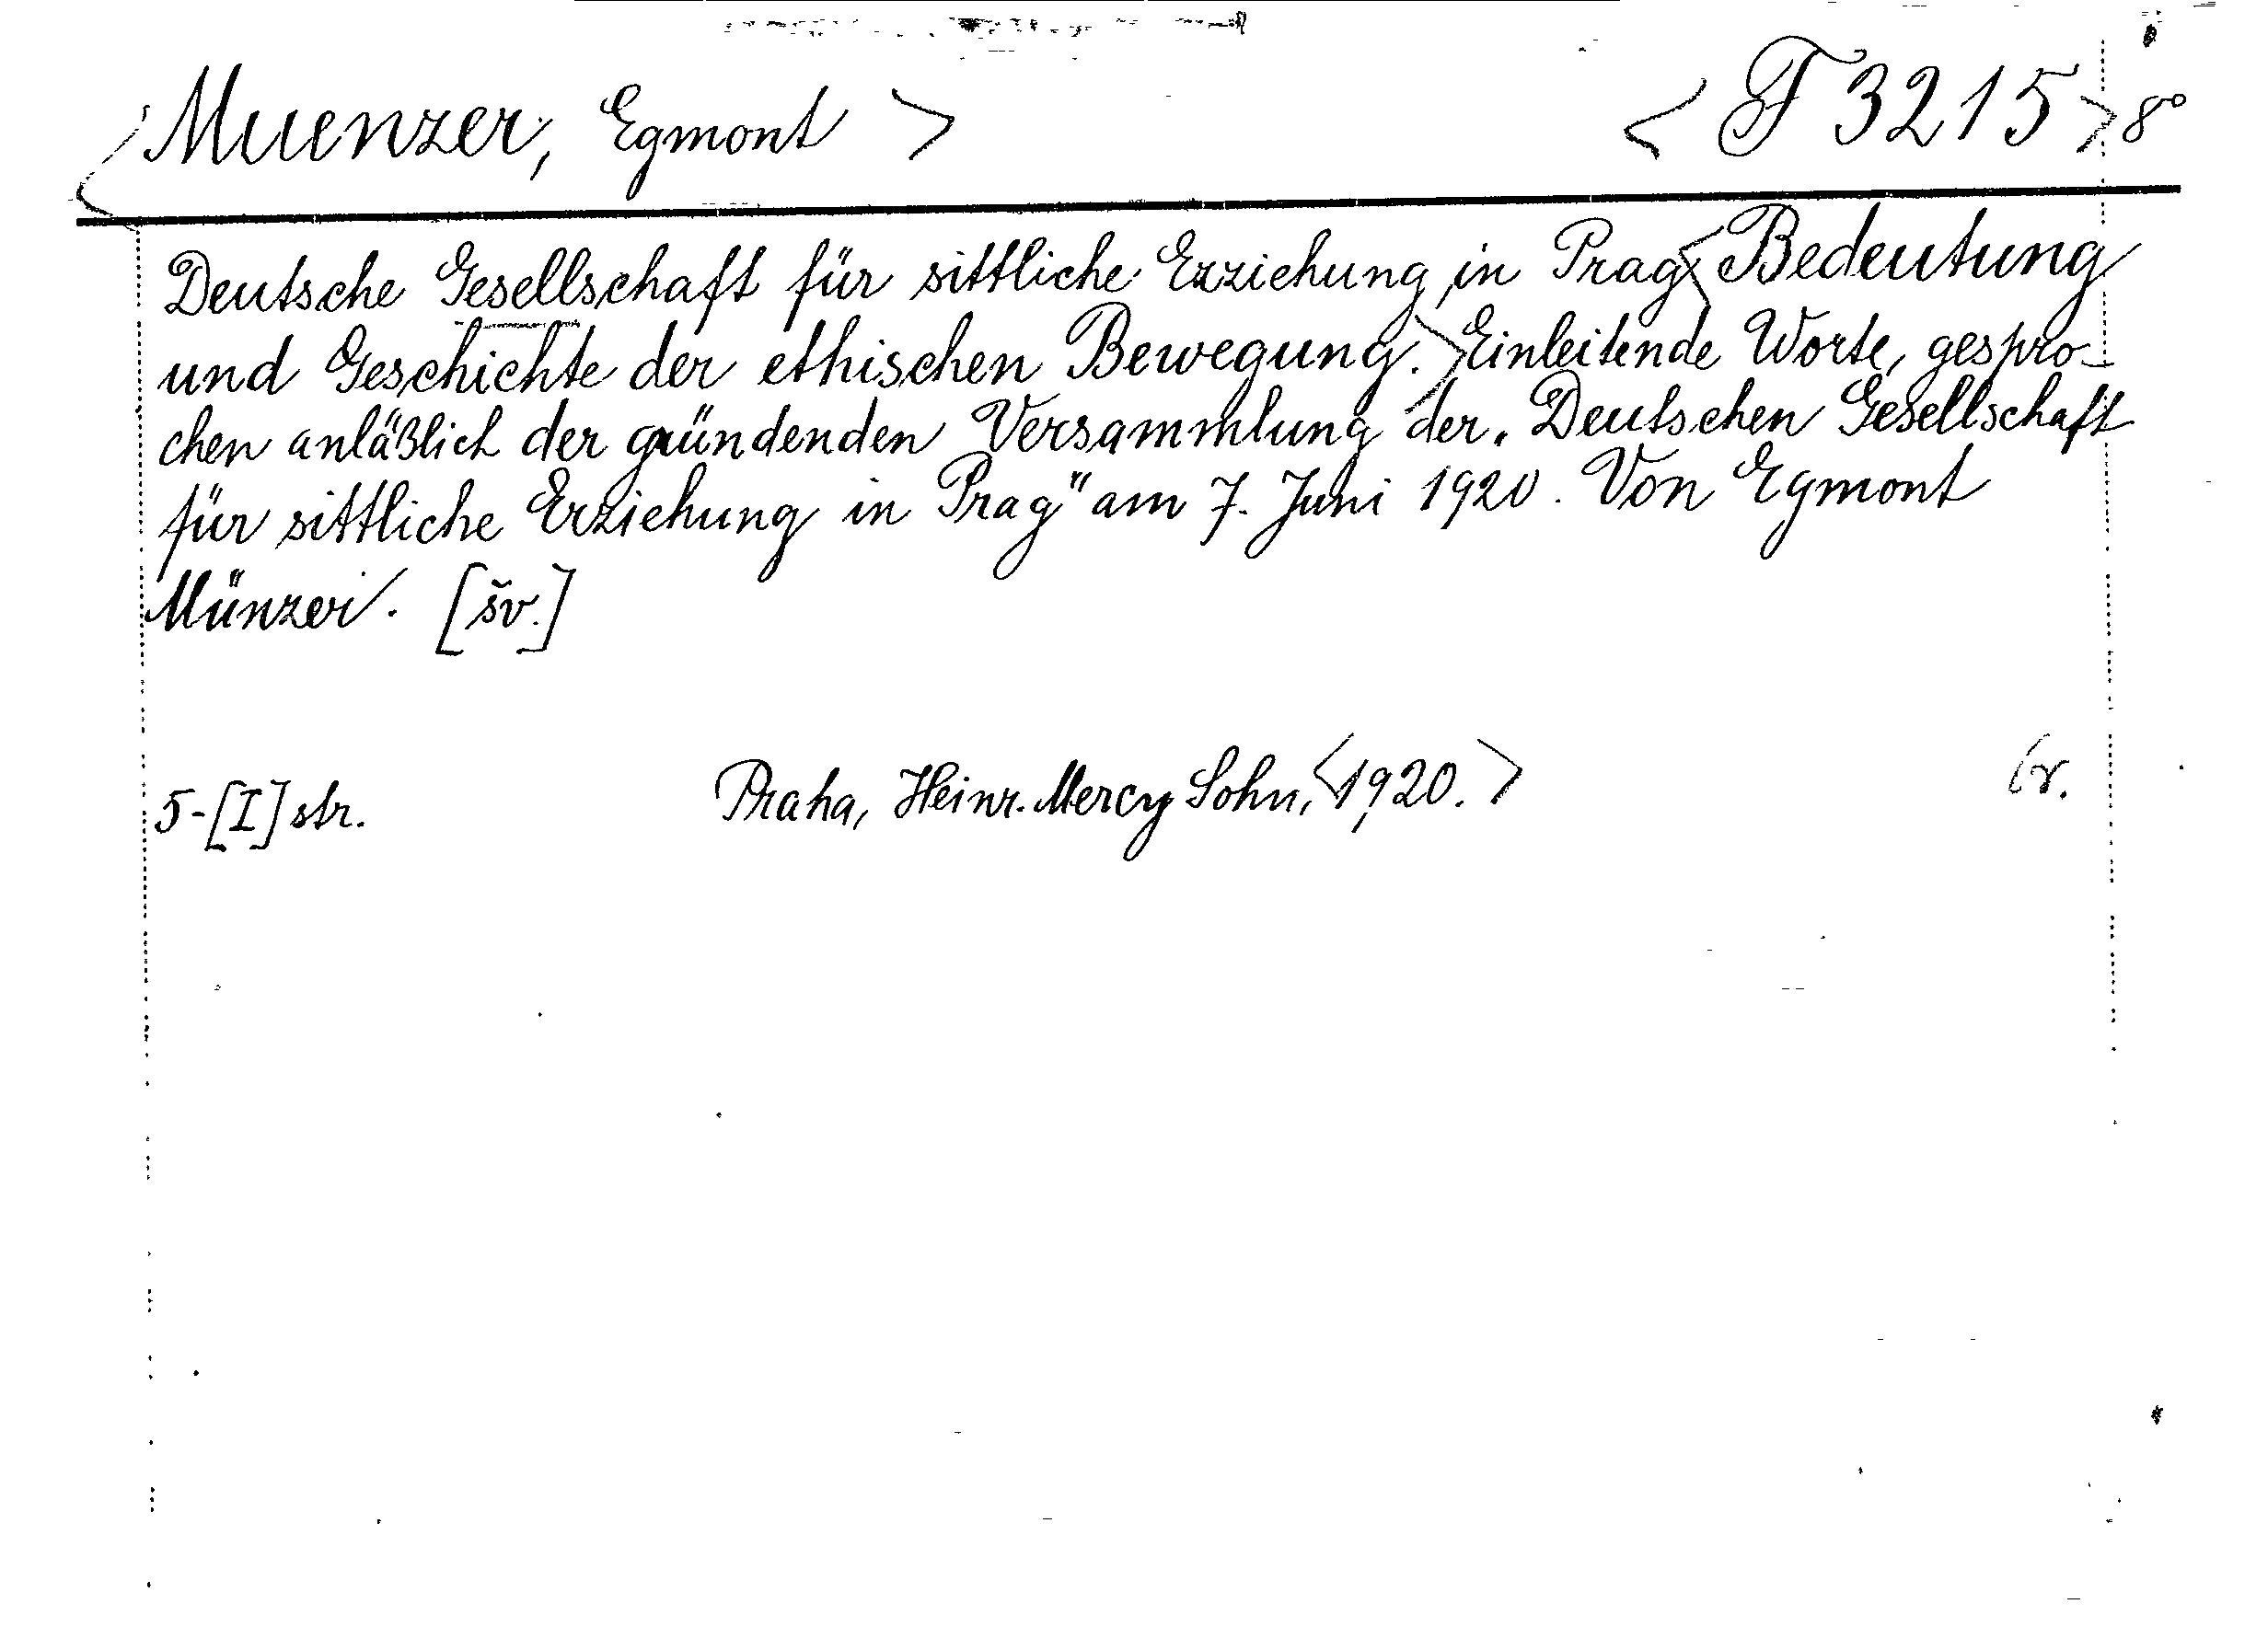 <Muenzer, Egmont> <F 3215> 8°
Deutsche Gesellschaft für sittliche Erziehung in Prag <Bedeutung
und Geschichte der ethischen Bewegung.> Einleitende Worte, gespro-
chen anläßlich der gründenden Versammlung der „Deutschen Gesellschaft
für sittliche Erziehung in Prag" am 7. Juni 1920. Von Egmont
Münzer. [šv.]
5-[I] str. Praha, Heinr. Mercy Sohn, <1920.>